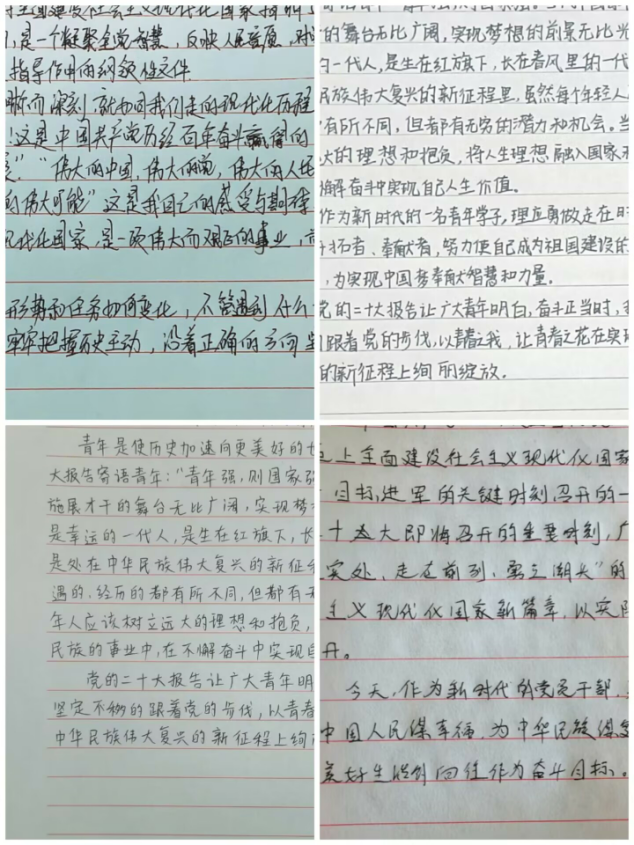 全面建设社会主义现代化国家
是一个凝聚全党智慧,反映人民意愿,对
指导作用的纲领性文件
晰而深刻,新加回我们走的现代化历程
!这是中国共产党历经百年奋斗赢得的
"伟大的中国,伟大的党,伟大的人民
的伟大可能"这是我自己的感受与期待
现代化国家,是一项伟大而艰巨的事业,
形势和任务如何变化,不管遇到什么
牢牢把握历史主动,沿着正确的方向
的舞台无比广阔,实现梦想的前景无比光
的一代人,是生在红旗下,长在春风里的一代
民族伟大复兴的新征程里,虽然每个年轻人
有所不同,但都有无穷的潜力和机会。当
大的理想和抱负,将人生理想融入国家和
懈奋斗中实现自己人生价值。
作为新时代的一名青年学子,理应勇做走在时
开拓者、奉献者,努力使自己成为祖国建设的
,为实现中国梦奉献智慧和力量。
党的二十大报告让广大青年明白,奋斗正当时,
跟着党的步伐,以青春之我,让青春之花在实现
的新征程上绚丽绽放。
青年是使历史加速向更美好的
大报告寄语青年:"青年强,则国家强
施展才干的舞台无比广阔,实现梦
是幸运的一代人,是生在红旗下,长
是处在中华民族伟大复兴的新征
遇的、经历的都有所不同,但都有
年人应该树立远大的理想和抱负,
民族的事业中,在不懈奋斗中实现自
党的二十大报告让广大青年明
坚定不移的跟着党的步伐,以青春
中华民族伟大复兴的新征程上绚
上全面建设社会主义现代化国家
目标,进军的关键时刻召开的一
十五大即将召开的重要时刻,广
实处、走在前列、勇立潮头"的
主义现代化国家新篇章,以实际
开。
今天,作为新时代的党员干部,
中国人民谋幸福,为中华民族谋复
美好生活的向往作为奋斗目标、